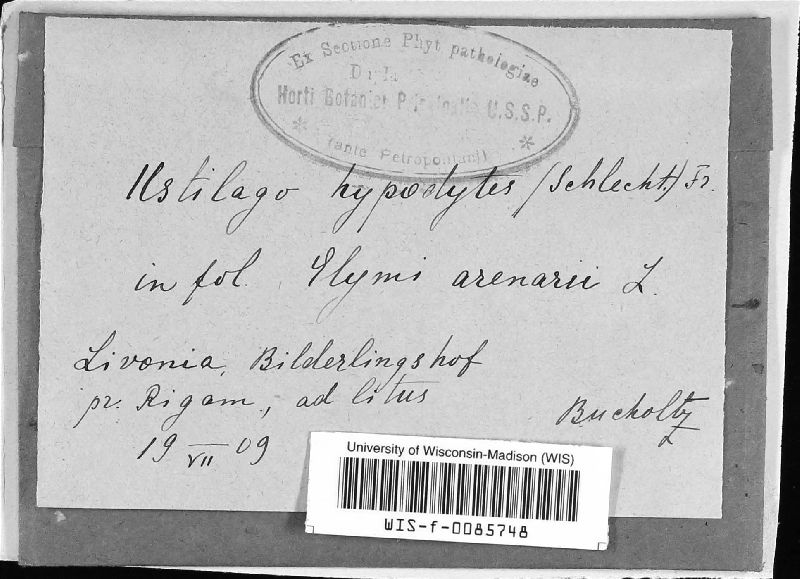 Ex Sectione Phytopathologiae
Horti Botanici Principalis U.S.S.P.
(ante Petropolitani)
Ustilago hypodytes (Schlecht.) Fr.
in fol. Elymi arenarii L.
Livonia, Bilderlingshof
pr. Rigam, ad litus
19 VII 09
Bucholtz
University of Wisconsin-Madison (WIS)
WIS-f-0085748